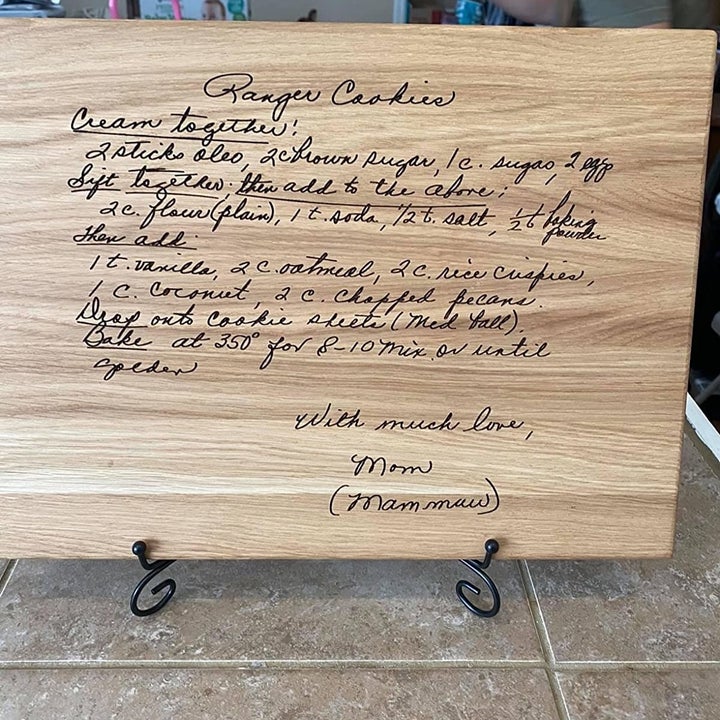 Ranger Cookies
Cream together!
2 sticks oleo, 2c brown sugar, 1 c. sugar, 2 egg
Sift together. then add to the above;
2 c. flour (plain), 1 t. soda, 1/2 t. salt, 1/2 t baking powder
Then add:
1 t. vanilla, 2 c. oatmeal, 2 c. rice crispies,
1 c. coconut, 2 c. chopped pecans.
Drop onto cookie sheets (med ball).
Bake at 350° for 8-10 mix. or until
golden
With much love,
Mom
(Mammaw)